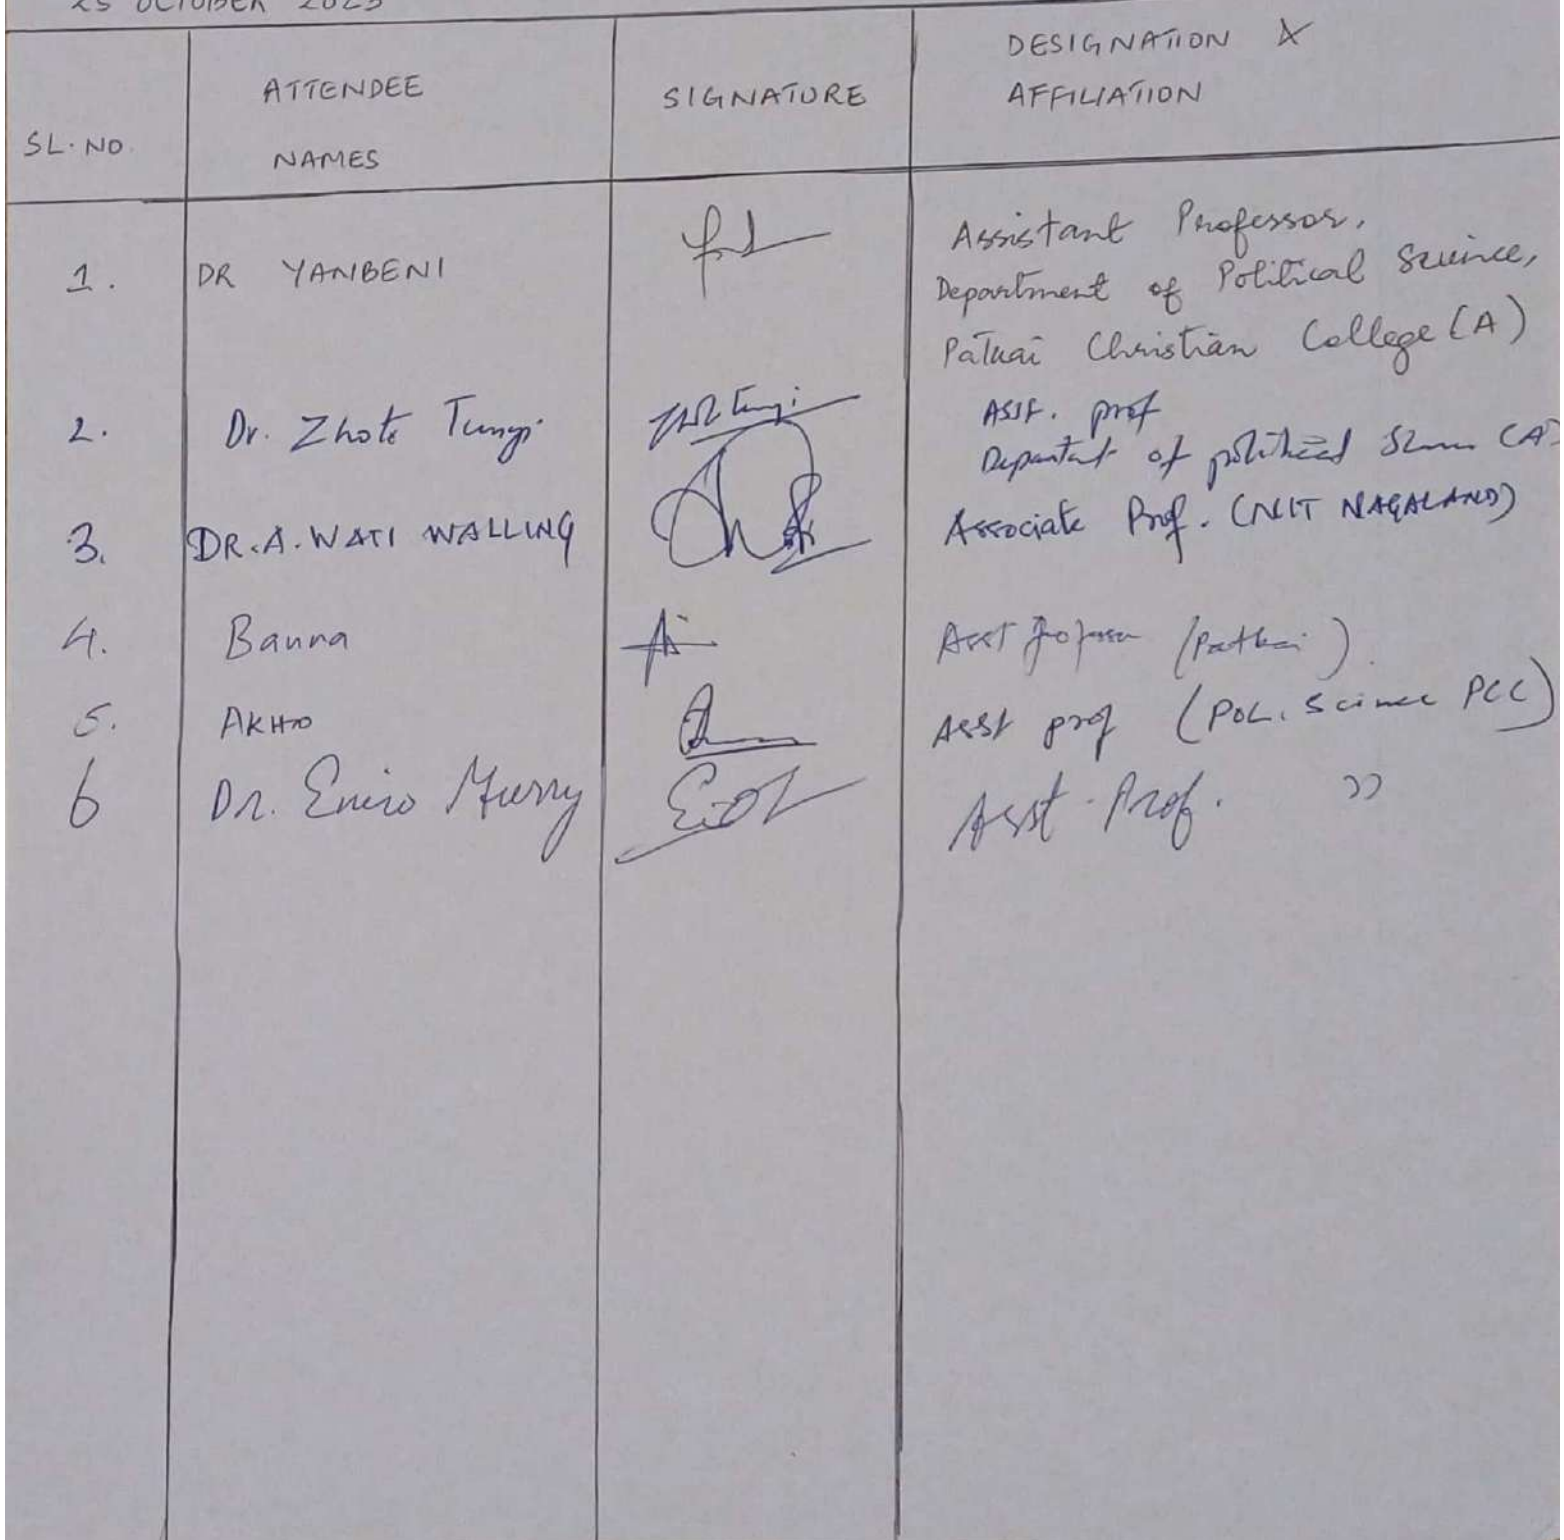 25 OCTOBER 2023
SL. NO.
ATTENDEE
NAMES
SIGNATURE
DESIGNATION &
AFFILIATION
1. DR YANBENI
Assistant Professor,
Department of Political Science,
Patkai Christian College (A)
2. Dr. Zhoto Tungi
Asst. prof
Department of political (A)
3. DR. A. WATI WALLING Associate Prof. (NIT NAGALAND)
4. Asst (Patkai)
5. AKHO Asst prof (POL. Science PCC)
6 Dr. Murry Asst. Prof. ”